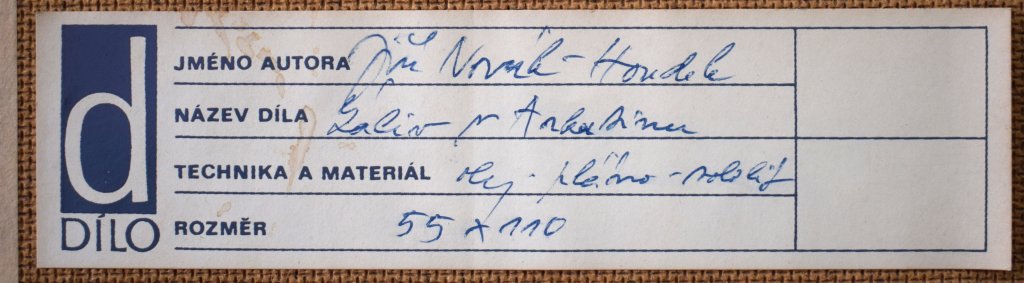 d
DÍLO
JMÉNO AUTORA Jiří Novák-Houdek
NÁZEV DÍLA Záliv
TECHNIKA A MATERIÁL olej - plátno - sololit
ROZMĚR 55 x 110